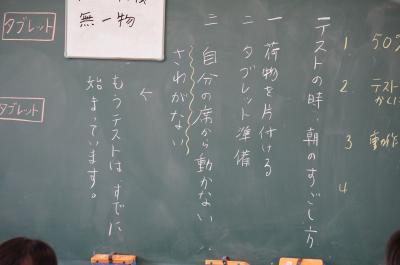 テストの時、朝のすごし方
一 荷物を片付ける
二 タブレット準備
三 自分の席から動かない
さわがない
もうテストは、すでに
始まっています。
無一物
タブレット
タブレット
1 50%
2 テスト
3
4